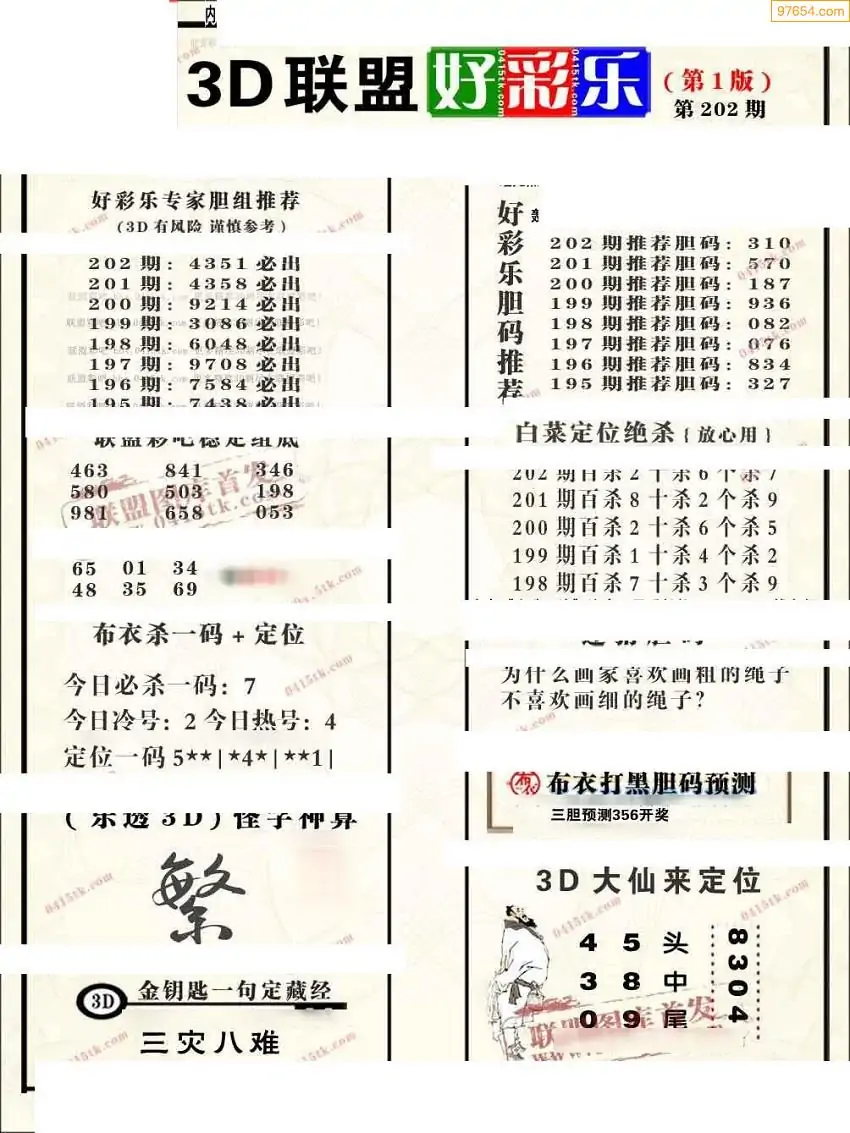 97654.com
内
3D联盟好彩乐(第1版)
第202期
好彩乐专家胆组推荐
(3D有风险 谨慎参考)
202期: 4351必出
201期: 4358必出
200期: 9214必出
199期: 3086必出
198期: 6048必出
197期: 9708必出
196期: 7584必出
195期: 7438必出
联盟彩吧稳定组底
463 841 346
580 503 198
981 658 053
65 01 34
48 35 69
布衣杀一码+定位
今日必杀一码: 7
今日冷号: 2 今日热号: 4
定位一码5**|*4*|**1|
(乐透3D)怪字神算
繁
3D 金钥匙一句定藏经
三灾八难
好彩乐胆码推荐
202期推荐胆码: 310
201期推荐胆码: 570
200期推荐胆码: 187
199期推荐胆码: 936
198期推荐胆码: 082
197期推荐胆码: 076
196期推荐胆码: 834
195期推荐胆码: 327
白菜定位绝杀{放心用}
202期百杀2十杀6个杀7
201期百杀8十杀2个杀9
200期百杀2十杀6个杀5
199期百杀1十杀4个杀2
198期百杀7十杀3个杀9
为什么画家喜欢画粗的绳子
不喜欢画细的绳子?
布衣打黑胆码预测
三胆预测356开奖
3D大仙来定位
4 5 头
3 8 中
0 9 尾
8304
联盟图库首发
0415tk.com